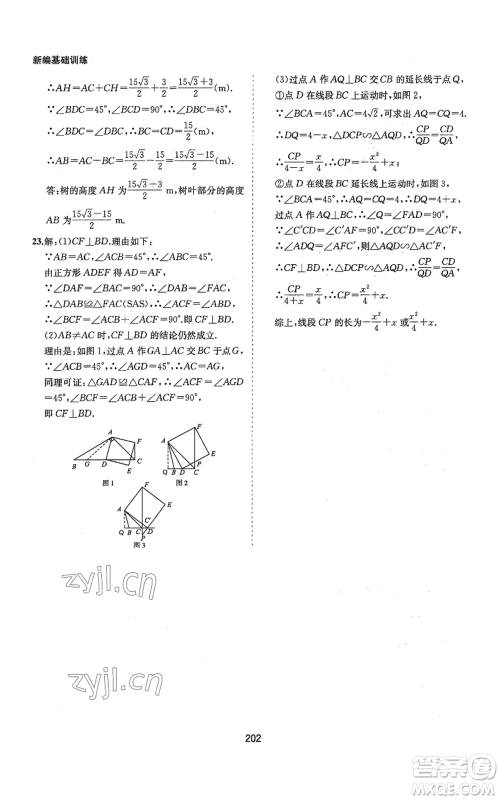 新编基础训练
∴AH=AC+CH=15√3/2+15/2=(15√3+15)/2(m).
∵∠BDC=45°,∠BCD=90°,∴∠DBC=45°,
∴∠BDC=∠DBC,∴BC=CD=15/2(m).
∴AB=AC-BC=15√3/2-15/2=(15√3-15)/2(m).
答:树的高度 AH 为 (15√3+15)/2 m,树叶部分的高度
AB 为 (15√3-15)/2 m.
23.解:(1)CF⊥BD.理由如下:
∵AB=AC,∴∠ABC=∠ACB=45°,
由正方形 ADEF 得 AD=AF,
∵∠DAF=∠BAC=90°,∴∠DAB=∠FAC,
∴△DAB≌△FAC(SAS),∴∠ACF=∠ABD=45°,
∴∠BCF=∠ACB+∠ACF=90°,即 CF⊥BD.
(2)AB≠AC 时,CF⊥BD 的结论仍然成立.
理由是:如图 1,过点 A 作 GA⊥AC 交 BC 于点 G,
∵∠ACB=45°,∴∠AGD=45°,∴AC=AG,
同理可证,△GAD≌△CAF,∴∠ACF=∠AGD
=45°,∠BCF=∠ACB+∠ACF=90°,
即 CF⊥BD.
A
F
B G D C
E
图 1
F
A
E
P
Q B D C
图 2
F
A
E
C′
Q B C D
P
图 3
(3)过点 A 作 AQ⊥BC 交 CB 的延长线于点 Q,
①点 D 在线段 BC 上运动时,如图 2,
∵∠BCA=45°,AC=4√2,可求出 AQ=CQ=4.
∴DQ=4-x,△DCP∽△AQD,∴CP/QD=CD/QA,
∴CP/(4-x)=x/4,∴CP=-x²/4+x;
②点 D 在线段 BC 延长线上运动时,如图 3,
∵∠BCA=45°,∴AQ=CQ=4,∴DQ=4+x.
∵∠C′CD=∠AC′F=90°,∴∠AQD=∠DCC′=90°,
∠ADQ=∠AFC′,则△AQD∽△AC′F.
∴CF⊥BD,∴△DCP∽△AQD,∴CP/QD=CD/QA,
∴CP/(4+x)=x/4,∴CP=x²/4+x.
综上,线段 CP 的长为-x²/4+x或x²/4+x.
zyjl.cn
zyjl.cn
202
作业精灵